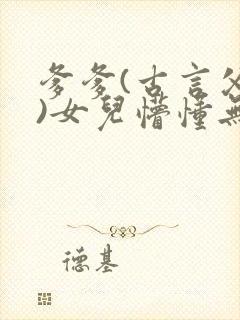 爹爹(古言父
)女兒懵懂無
德基